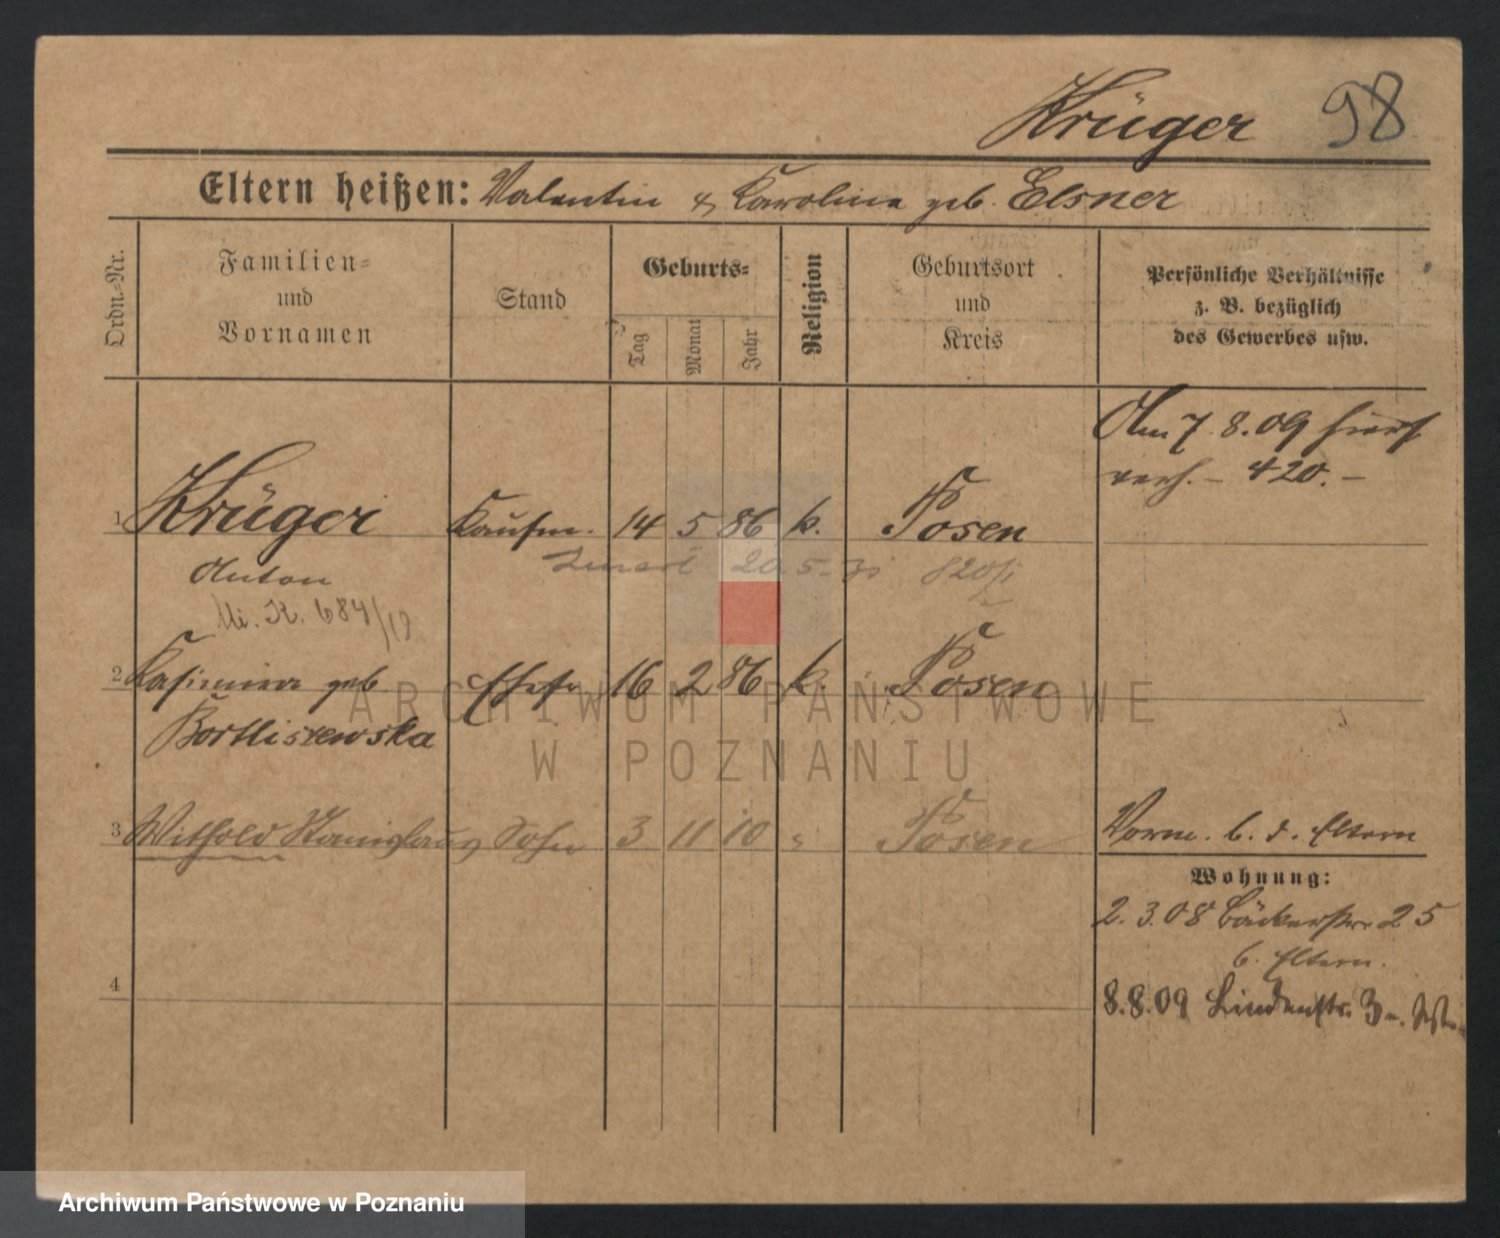 Krüger 98
Eltern heißen: Valentin & Karoline geb. Elsner
Ordn.-Nr.
Familien-
und
Vornamen
Stand
Geburts-
Tag
Monat
Jahr
Religion
Geburtsort
und
Kreis
Persönliche Verhältnisse
z. B. bezüglich
des Gewerbes usw.
Am 7. 8. 09
verh. – 420. –
1 Krüger Kaufm. 14 5 86 k. Posen
20. 5.
Anton
Mi. K. 684/18
2 Kasimira geb. Ehefr 16 2 86 k. Posen
Bortliszewska
3 Withold Stanislaus Sohn 3 11 10 " Posen
Vorm. b. d. Eltern
Wohnung:
2. 3. 08 Bäckerstr. 25
b. Eltern.
4
8. 8. 09 Lindenstr. 3
ARCHIWUM PAŃSTWOWE
W POZNANIU
Archiwum Państwowe w Poznaniu